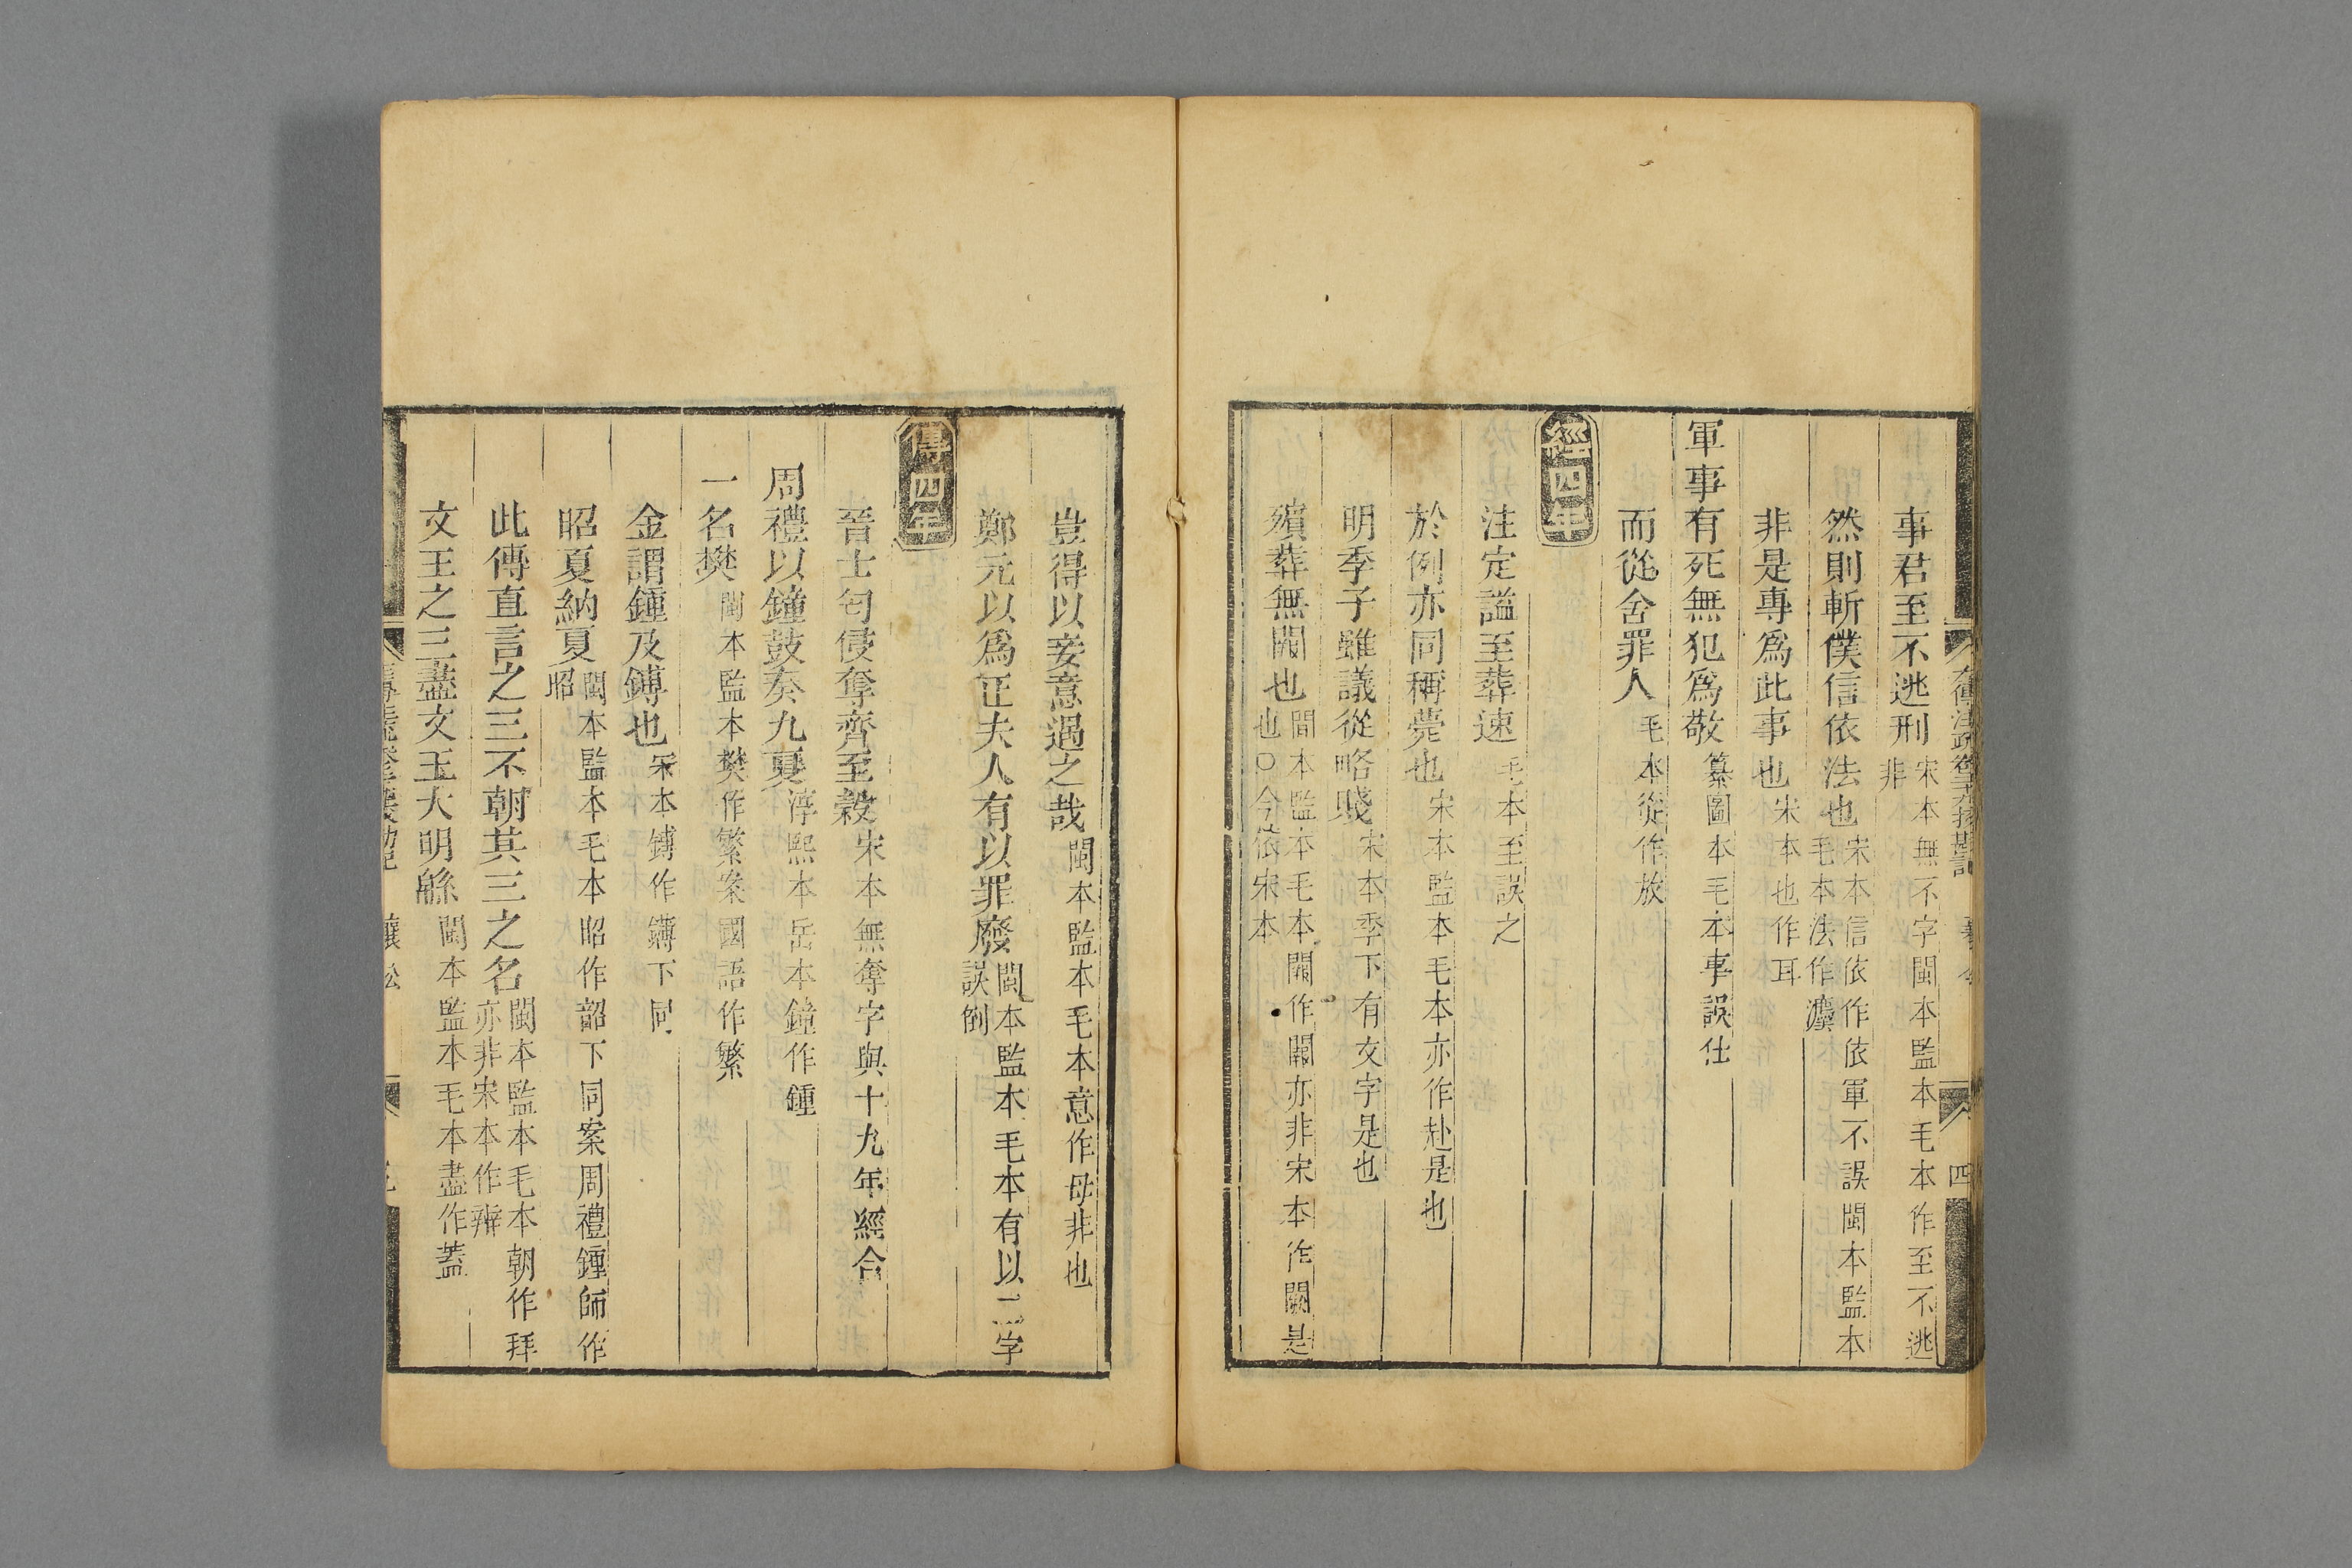 事君至不逃刑宋本無不字閩本監本毛本作至不逃非
然則斬僕信依法也宋本信依作依軍不誤閩本監本毛本法作灋
非是專爲此事也宋本也作耳
軍事有死無犯爲敬纂圖本毛本事誤仕
而從舍罪人毛本從作放
經四年
注定謚至葬速毛本至誤之
於例亦同稱薨也宋本監本毛本亦作赴是也
明季子雖議從略賤宋本季下有文字是也
殯葬無闕也閩本監本毛本闕作關亦非宋本作闕是也〇今依宋本
豈得以妾意過之哉閩本監本毛本意作母非也
鄭元以爲正夫人有以罪廢閩本監本毛本有以二字誤倒
傳四年
晉士匄侵齊至穀宋本無奪字與十九年經合
周禮以鐘鼓奏九夏淳熙本岳本鐘作鍾
一名樊閩本監本樊作繁案國語作繁
金謂鍾及鎛也宋本鎛作鑮下同
昭夏納夏閩本監本毛本昭作韶下同案周禮鍾師作昭
此傳直言之三不朝其三之名閩本監本毛本朝作拜亦非宋本作辨
文王之三蓋文王大明緜閩本監本毛本盡作蓋